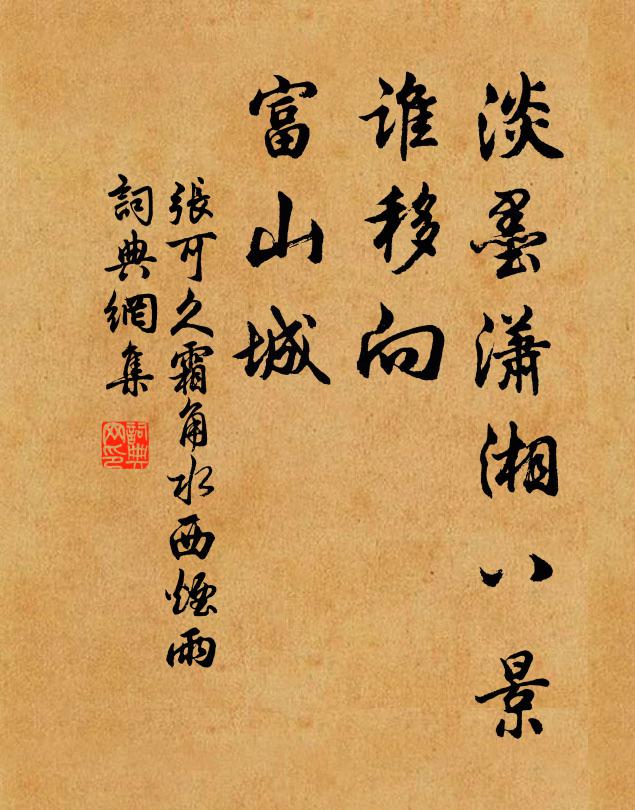 淡墨瀟湘八景
誰移向
富山城
張可久霜角水西煙雨
詞典網集
詞典
网印